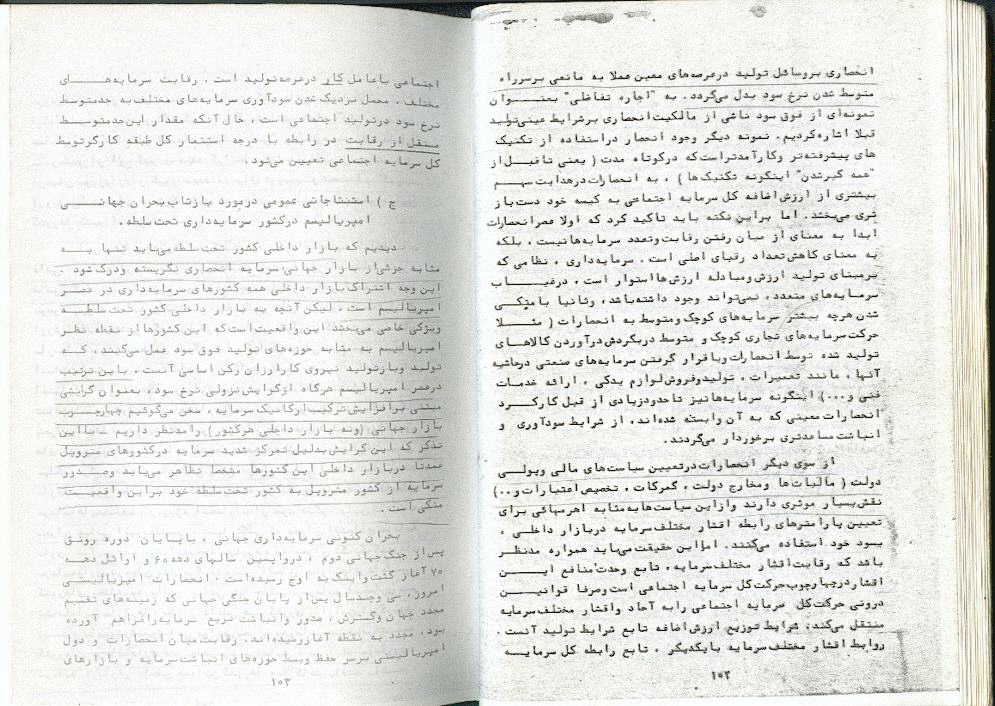 انحصاری بروسائل تولید درعرصه‌های معین عملا به مانعی برسرراه
متوسط شدن نرخ سود بدل می‌گردد. به "اجاره تفاظلی" بعنـــوان
نمونه‌ای از فوق سود ناشی از مالکیت انحصاری برشرایط عینی‌تولید
قبلا اشاره‌کردیم. نمونه دیگر وجود انحصار دراستفاده از تکنیک
های پیشرفته‌تر وکارآمدتراست‌که درکوتاه مدت ( یعنی تاقبل‌از
"همه گیرشدن" اینگونه تکنیک‌ها ) ، به انحصارات درهدایت سهـم
بیشتری از ارزش‌اضافه کل سرمایه اجتماعی به کیسه خود دست‌باز
تری می‌بخشد. اما براین نکته باید تاکید کرد که اولا عصرانحصارات
ابدا به معنای از میان رفتن رقابت‌وتعدد سرمایه‌هانیست ، بلکه
به معنای کاهش‌تعداد رقبای اصلی است . سرمایه‌داری ، نظامی که
برمبنای تولید ارزش‌ومبادله ارزش‌هااستوار است ، درغیـــاب
سرمایه‌های متعدد، نمی‌تواند وجود داشته‌باشد، وثانیا بامتکی
شدن هرچه بیشتر سرمایه‌های کوچک ومتوسط به انحصارات ( مثــلا
حرکت‌سرمایه‌های تجاری کوچک و متوسط دربگردش‌درآوردن کالاهـای
تولید شده توسط انحصارات‌ویاقرار گرفتن سرمایه‌های صنعتی درحاشیه
آنها ، مانند تعمیرات ، تولیدوفروش‌لوازم یدکی ، ارائه خدمـات
فنی و...) اینگونه سرمایه‌هانیز تاحدودزیادی از قبل کارکــرد
انحصارات معینی که به آن وابسته شده‌اند، از شرایط سودآوری و
انباشت مساعدتری برخوردار می‌گردند.
از سوی دیگر انحصارات درتعیین سیاست‌های مالی وپولــی
دولت ( مالیات‌ها ومخارج دولت ، گمرکات ، تخصیص‌اعتبارات‌و..)
نقش‌بسیار موثری دارند وازاین سیاست‌هابه‌مثابه اهرمهائی برای
تعیین پارامترهای رابطه اقشار مختلف‌سرمایه دربازار داخلی ،
بسود خود استفاده می‌کنند. امااین حقیقت می‌باید همواره مدنظر
باشد که رقابت‌اقشار مختلف‌سرمایه، تابع وحدت‌منافع ایـــن
اقشار درچهارچوب‌حرکت‌کل سرمایه اجتماعی است‌وصرفا قوانیـــن
درونی حرکت‌کل سرمایه اجتماعی رابه آحاد واقشار مختلف‌سرمایه
منتقل می‌کند، شرایط توزیع ارزش‌اضافه تابع شرایط تولید آنست .
روابط اقشار مختلف سرمایه بایکدیگر ، تابع رابطه کل سرمایـــه
۱۰۲
اجتماعی باعامل کار درعرصه‌تولید است . رقابت سرمایه‌هـــای
مختلف ، معمل نزدیک شدن سودآوری سرمایه‌های مختلف‌به حدمتوسط
نرخ سود درتولید اجتماعی است ، حال آنکه مقدار این‌حدمتوسـط
مستقل از رقابت در رابطه با درجه استثمار کل طبقه کارگرتوسط
کل سرمایه اجتماعی تعیین می‌شود.
ج ) استنتاجاتی عمومی درمورد بازتاب بحران جهانــی
امپریالیسم درکشور سرمایه‌داری تحت‌سلطه .
دیدیم که بازار داخلی کشور تحت‌سلطه‌می‌باید تنها بـــه
مثابه جزئی‌از بازار جهانی سرمایه انحصاری نگریسته ودرک شود .
این وجه اشتراک بازار داخلی همه کشورهای سرمایه‌داری در عصر
امپریالیسم است ، لیکن آنچه به بازار داخلی کشور تحت سلطـه
ویژگی خاصی می‌بخشد این واقعیت است که این کشورها از نقطه نظر
امپریالیسم به مثابه حوزه‌های تولید فوق سود عمل می‌کنند، کـه
تولید وبازتولید نیروی کارارزان رکن اساسی آنست . باین ترتیب
درعصر امپریالیسم هرگاه ازگرایش‌نزولی نرخ سود، بعنوان گرایشی
مبتنی برافزایش ترکیب ارگانیک سرمایه ، سخن می‌گوئیم چهارچـوب
بازار جهانی (ونه بازار داخلی هرکشور) رامدنظر داریم - بااین
تذکر که این گرایش‌بدلیل تمرکز شدید سرمایه درکشورهای متروپل
عمدتا دربازار داخلی این کشورها مشخصا تظاهر می‌یابد وصـــدور
سرمایه از کشور متروپل به کشور تحت‌سلطه خود براین واقعیـت
متکی است .
بحران کنونی سرمایه‌داری جهانی ، باپایان دوره رونـق
پس از جنگ جهانی دوم ، درواپسین سالهای دهه ۶۰ و اوائل دهــه
۷۰ آغاز گشت واینک به اوج رسیده‌است . انحصارات امپریالیستـی
امروز، سی وچندسال پس‌از پایان جنگی جهانی که زمینه‌های تقسیم
مجدد جهان وگسترش ، صدور وانباشت سریع سرمایه‌رافراهم آورده
بود، مجدد به نقطه آغاز رسیده‌اند. رقابت‌میان انحصارات و دول
امپریالیستی برسر حفظ وبسط حوزه‌های انباشت سرمایه و بازارهای
۱۰۳